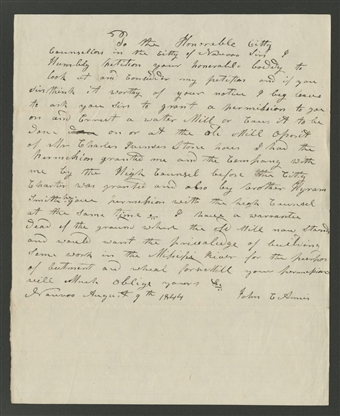 To the Honorable Citty
Counselors in the Citty of Nauvoo Sirs I
Humbly petition your honorable boddy to
look at and Consider my petition and if you
Sirs think it worthy of your notice I beg leave
to ask you Sirs to grant a permission to go
on and Errect a water Mill or Caus it to be
done on or at the Mill Oposit
of Mr Charles Stone house I had the
Permission granted me and the Company with
me by the High Counsel before this Citty
Charter was granted and also by brother Hyram
Smith gave permission with the high Counsel
at the same time I have a warrantee
Dead of the ground where the Mill now stands
and would want the privaledge of building
Some work in the River for the purpos
of and wheal for Mill your permission
will Much Oblige yours &c
Nauvoo August 9th 1844 John E